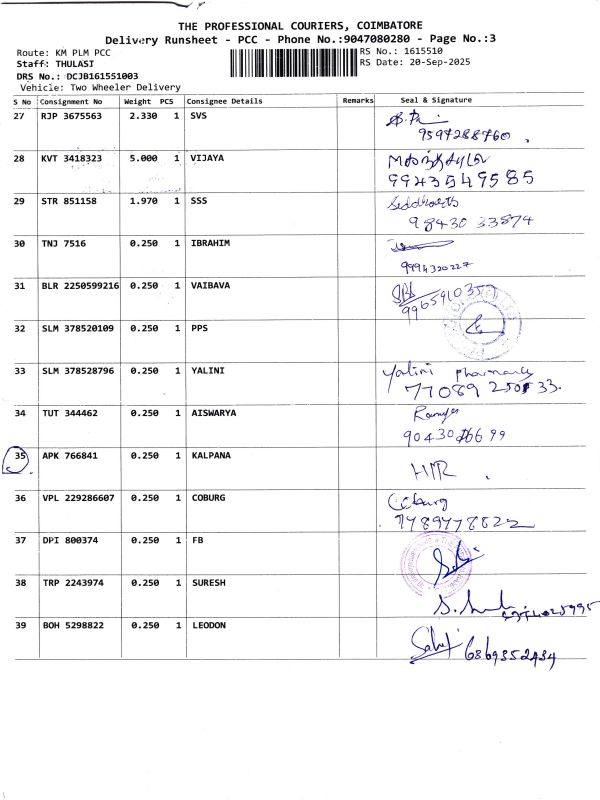 THE PROFESSIONAL COURIERS, COIMBATORE
Delivery Runsheet - PCC - Phone No.:9047080280 - Page No.:3
Route: KM PLM PCC RS No.: 1615510
Staff: THULASI RS Date: 20-Sep-2025
DRS No.: DCJB161551003
Vehicle: Two Wheeler Delivery
S No Consignment No Weight PCS Consignee Details Remarks Seal & Signature
27 RJP 3675563 2.330 1 SVS
9597288760
28 KVT 3418323 5.000 1 VIJAYA
9943549585
29 STR 851158 1.970 1 SSS Siddharth
98430 33874
30 TNJ 7516 0.250 1 IBRAHIM
9994320227
31 BLR 2250599216 0.250 1 VAIBAVA
32 SLM 378520109 0.250 1 PPS
33 SLM 378528796 0.250 1 YALINI Yalini pharmacy
34 TUT 344462 0.250 1 AISWARYA
35 APK 766841 0.250 1 KALPANA
36 VPL 229286607 0.250 1 COBURG Coburg
37 DPI 800374 0.250 1 FB
38 TRP 2243974 0.250 1 SURESH
39 BOH 5298822 0.250 1 LEODON
6369352434